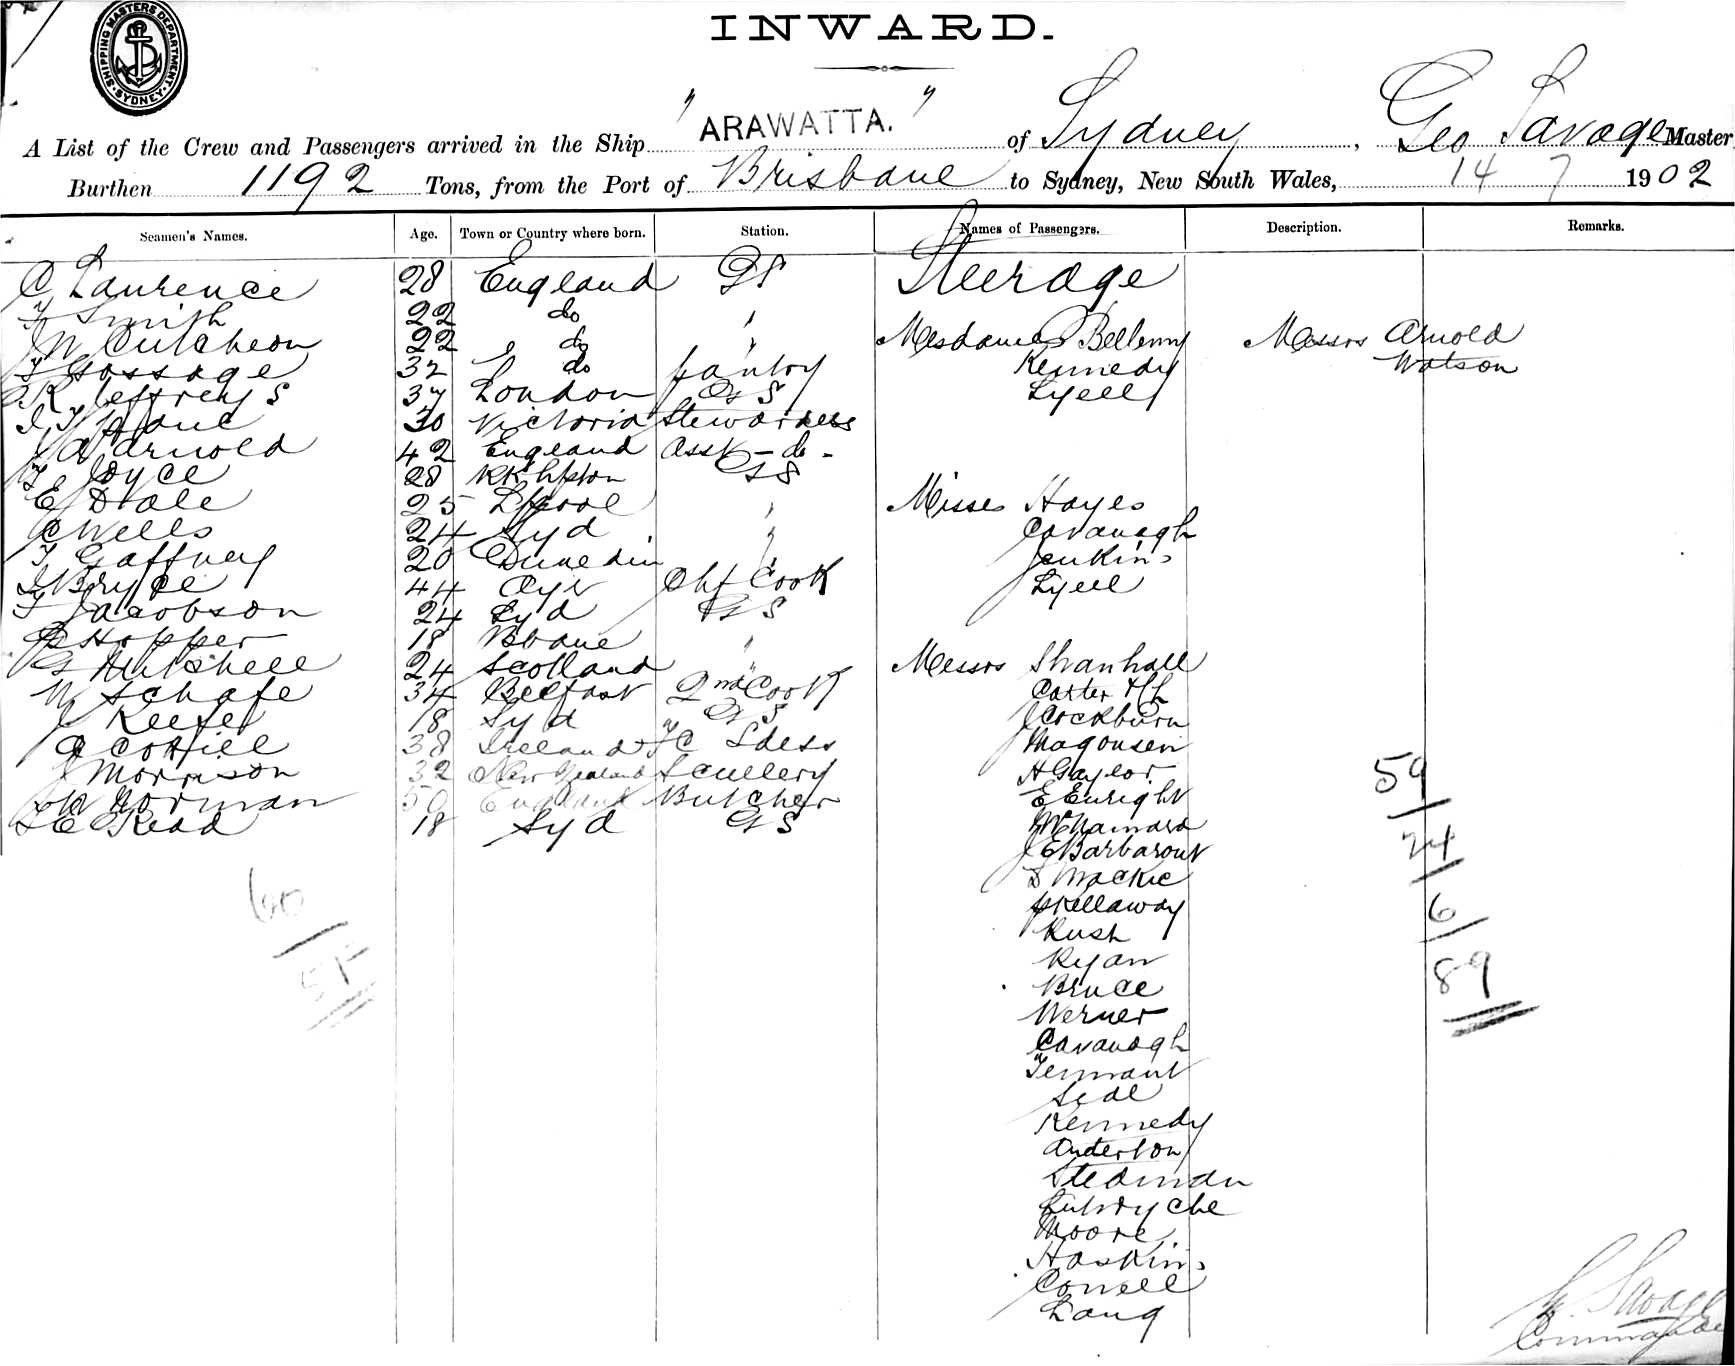 SHIPPING MASTERS DEPARTMENT
SYDNEY
INWARD.
A List of the Crew and Passengers arrived in the Ship "ARAWATTA." of Sydney, Geo Savage Master
Burthen 1192 Tons, from the Port of Brisbane to Sydney, New South Wales, 14 7 1902
Seamen's Names. Age. Town or Country where born. Station. Names of Passengers. Description. Remarks.
C Laurence 28 England GS Steerage
Smith 22 do "
Cutcheon 22 do " Mesdames Bellamy Messrs Arnold
Gossage 32 do pantry Kennedy Watson
R Jeffreys 37 London GS Lyell
30 Victoria Stewardess
Arnold 42 England Asst - do -
Joyce 28 GS
E Dale 25 L'pool " Misses Hayes
C Wells 24 Syd " Cavanagh
T Gaffney 20 Dunedin " Jenkins
Bryce 44 Ayr Chf Cook Lyell
Jacobson 24 Syd GS
Hopper 18 Bbane "
G Mitchell 24 Scotland " Messrs Shanhall
W Schafe 34 Belfast 2nd Cook Carter
J Keefe 18 Syd GS J Cockburn
38 Ireland FC Sdess Magonsen
J Morrison 32 New Zealand Scullery H Gaylor
Gorman 50 England Butcher E Enright
Read 18 Syd GS McNamara
J E Barbarout
D Mackie
Kellaway
Rush
Ryan
Bruce
Werner
Cavanagh
Tennant
Seal
Kennedy
Anderton
Stedman
Lutwyche
Moore
Hoskins
Connell
Lang
59
24
6
89
60
G. Savage
Commander